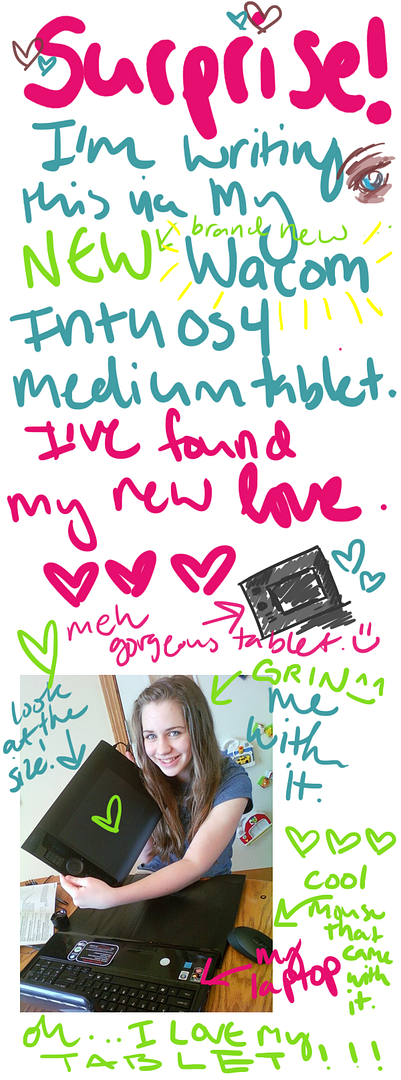 Surprise!
I'm writing
this via my
NEW brand new
Wacom
Intuos4
medium tablet.
I've found
my new love.
meh
gorgeous tablet. :)
GRIN^^
look
at the
size!
me
with
it.
cool
mouse
that
came
with
it.
my
laptop
oh...I LOVE my
TABLET!!!